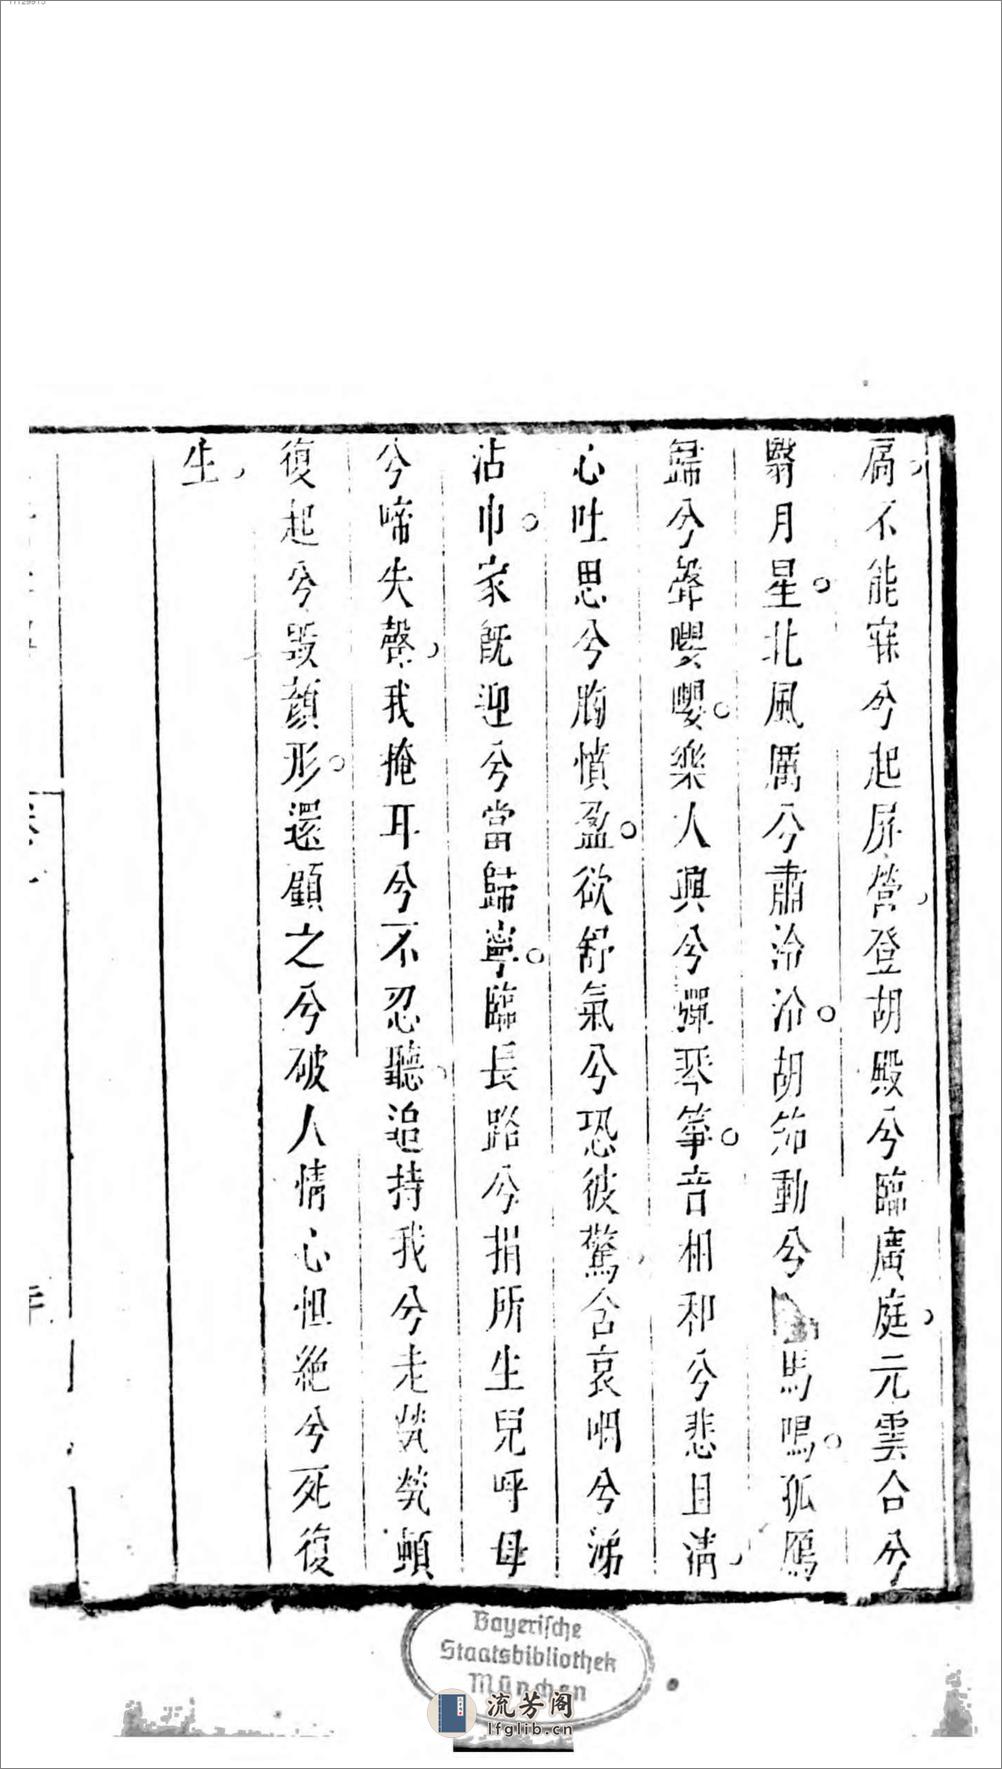 扃不能寐兮起屏營登胡殿兮臨廣庭元雲合兮
翳月星北風厲兮肅泠泠胡笳動兮馬鳴孤鴈
歸兮聲嚶嚶樂人興兮彈琴箏音相和兮悲且淸
心吐思兮胸憤盈欲舒氣兮恐彼驚含哀咽兮涕
沾巾家旣迎兮當歸寧臨長路兮捐所生兒呼母
兮啼失聲我掩耳兮不忍聽追持我兮走煢煢頓
復起兮毀顏形還顧之兮破人情心怛絶兮死復
生
Bayerische
Staatsbibliothek
München
流芳阁
lfglib.cn